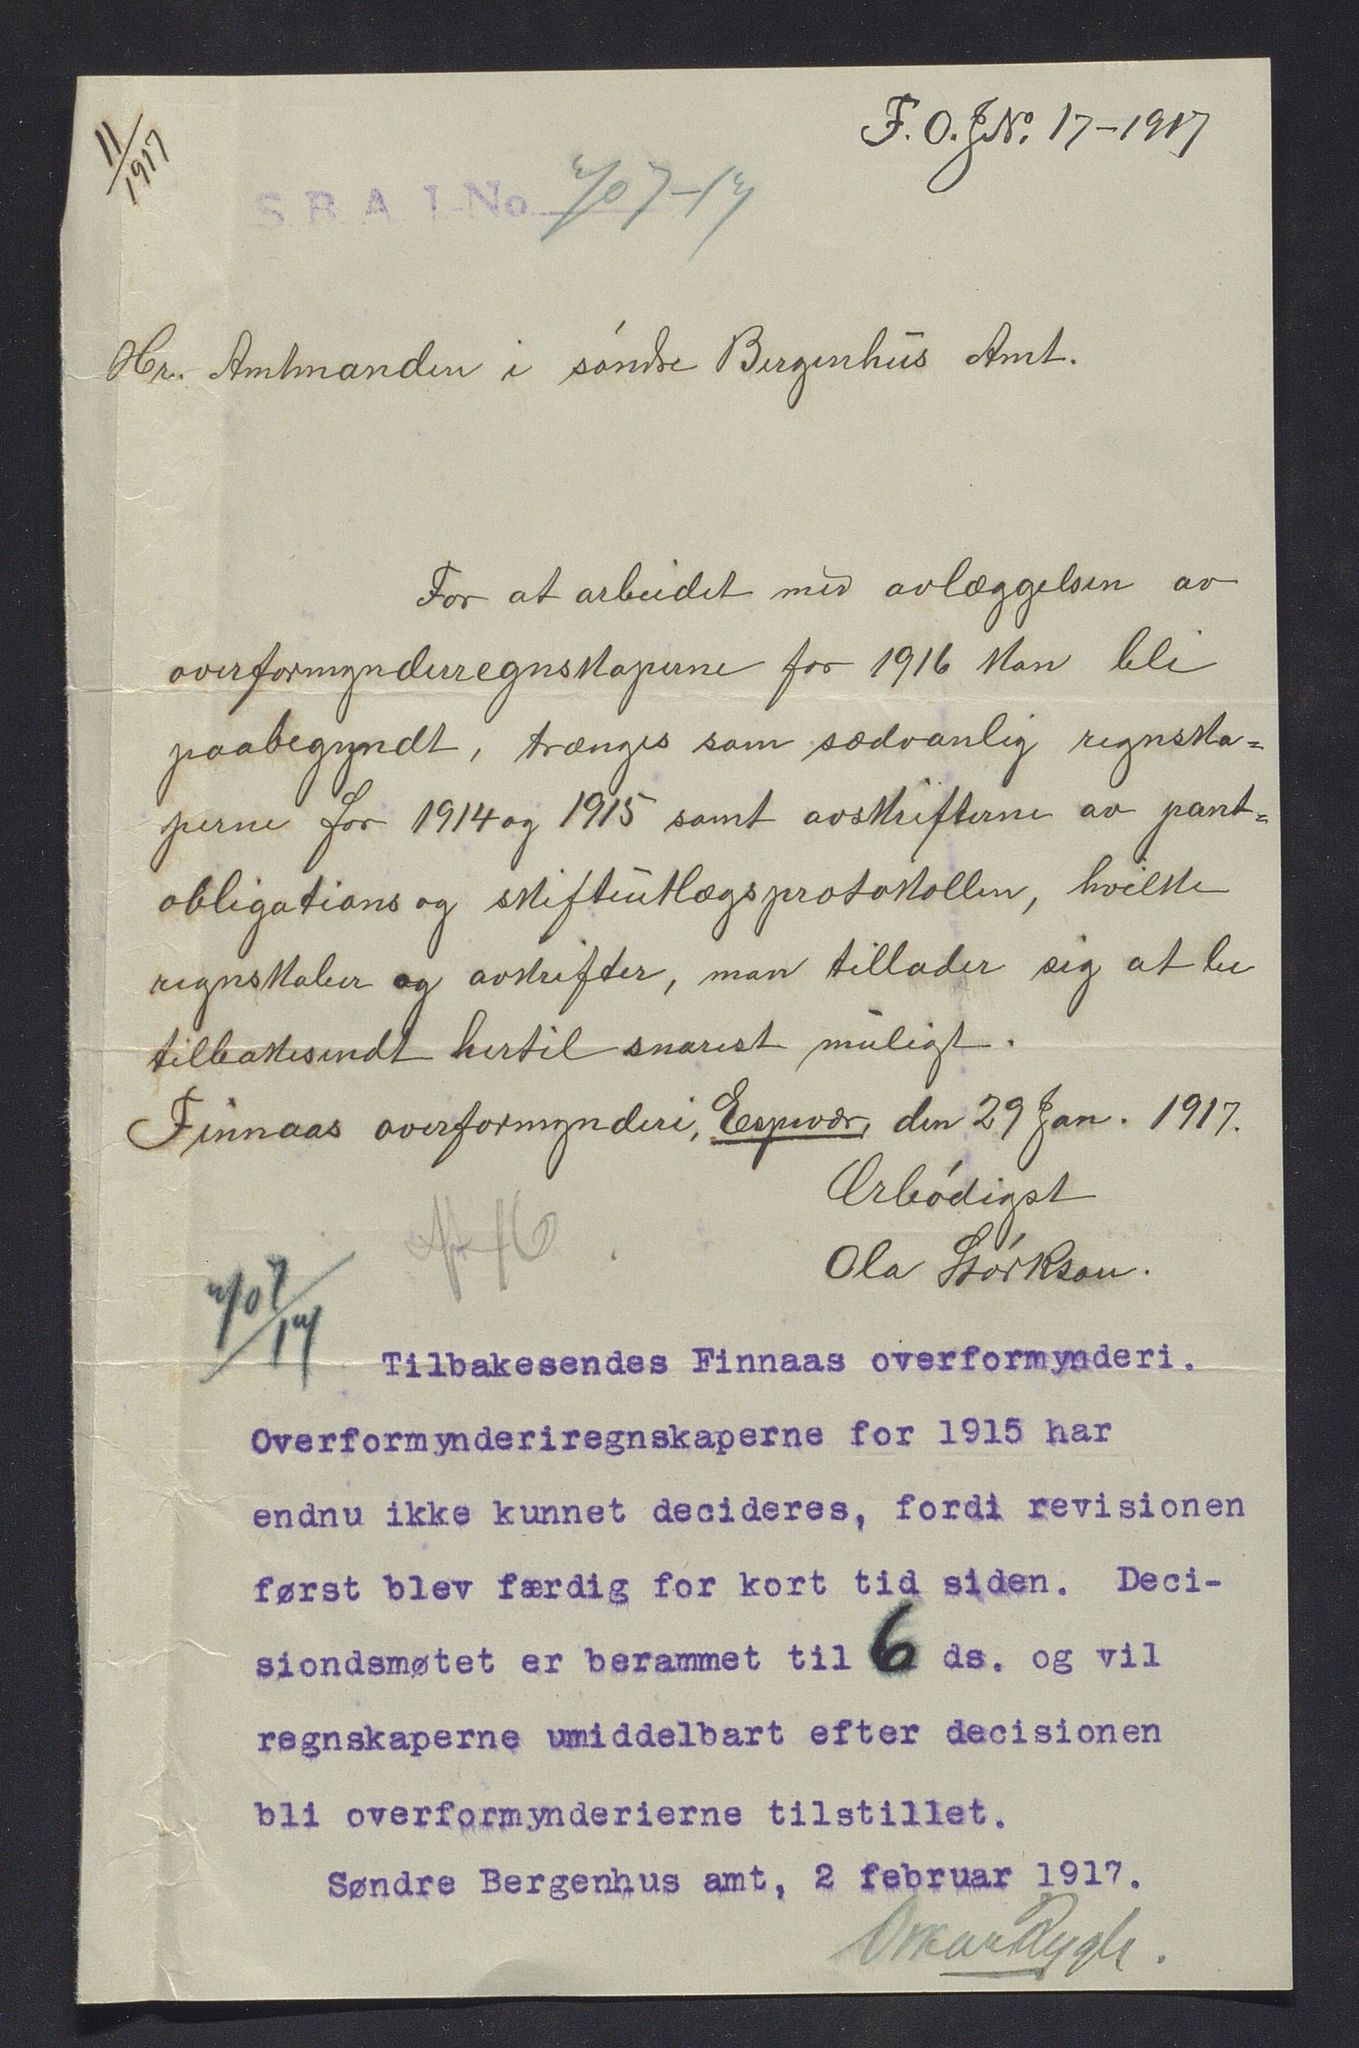 11/1917
F. O. J No. 17-1917
S. B. A. J-No. 407-17
Hr. Amtmanden i søndre Bergenhus Amt.
For at arbeidet med avlæggelsen av
overformynderregnskaperne for 1916 kan bli
paabegyndt, trænges som sædvanlig regnska=
perne for 1914 og 1915 samt avskrifterne av pant=
obligations og skifteutlægsprotokollen, hvilke
regnskaber og avskrifter, man tillader sig at be
tilbakesendt hertil snarest muligt.
Finnaas overformynderi, Espevær, den 29 Jan. 1917.
Ærbødigst
Ola Størkson.
407/17
Tilbakesendes Finnaas overformynderi.
Overformynderiregnskaperne for 1915 har
endnu ikke kunnet decideres, fordi revisionen
først blev færdig for kort tid siden. Deci-
siondsmøtet er berammet til 6 ds. og vil
regnskaperne umiddelbart efter decisionen
bli overformynderierne tilstillet.
Søndre Bergenhus amt, 2 februar 1917.